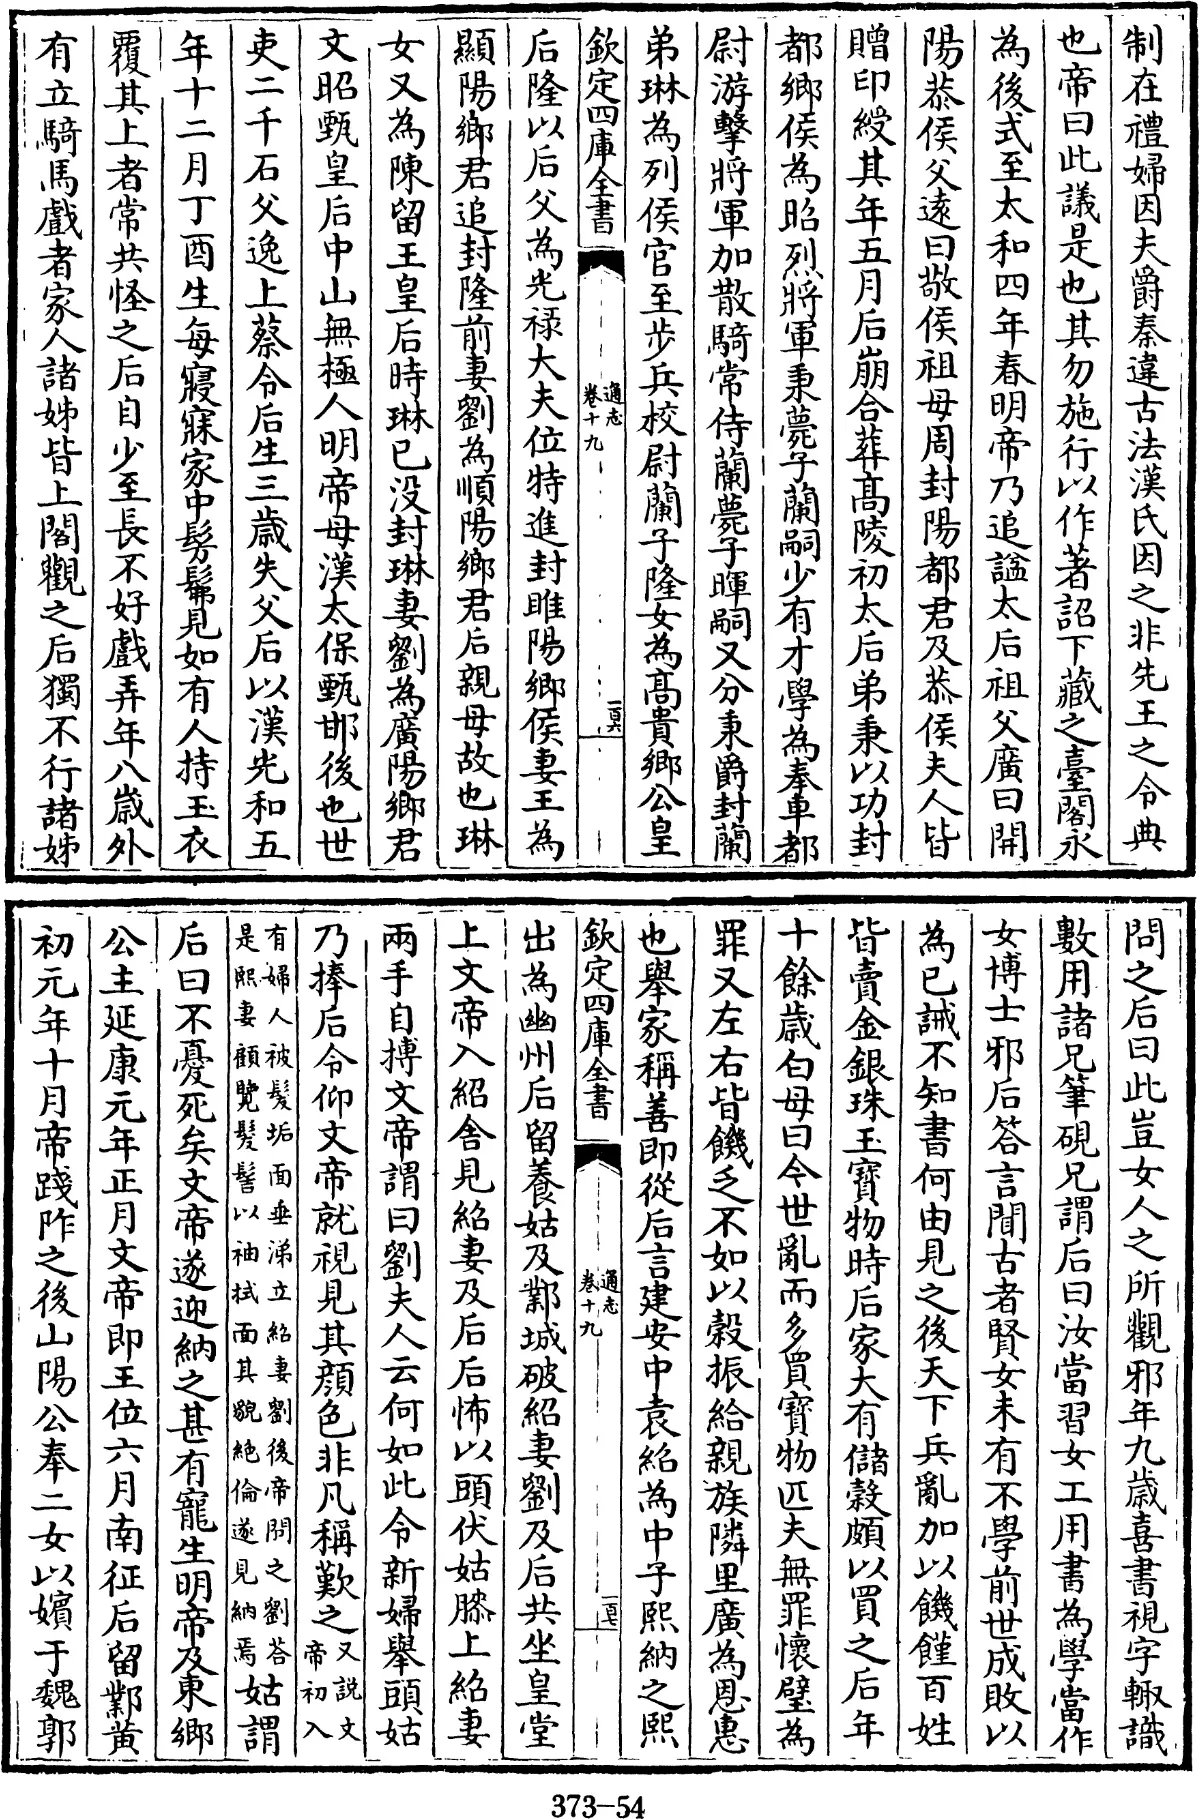 制在禮婦因夫爵秦違古法漢氏因之非先王之令典
也帝曰此議是也其勿施行以作著詔下藏之臺閣永
為後式至太和四年春明帝乃追謚太后祖父廣曰開
陽恭侯父遠曰敬侯祖母周封陽都君及恭侯夫人皆
贈印綬其年五月后崩合葬髙陵初太后弟秉以功封
都鄉侯為昭烈將軍秉薨子蘭嗣少有才學為奉車都
尉游擊將軍加散騎常侍蘭薨子暉嗣又分秉爵封蘭
弟琳為列侯官至步兵校尉蘭子隆女為髙貴鄉公皇
欽定四庫全書
通志
卷十九
一百六
后隆以后父為光禄大夫位特進封睢陽鄉侯妻王為
顯陽鄉君追封隆前妻劉為順陽鄉君后親母故也琳
女又為陳留王皇后時琳已没封琳妻劉為廣陽鄉君
文昭甄皇后中山無極人明帝母漢太保甄邯後也世
吏二千石父逸上蔡令后生三歲失父后以漢光和五
年十二月丁酉生每寢寐家中髣髴見如有人持玉衣
覆其上者常共怪之后自少至長不好戲弄年八歲外
有立騎馬戲者家人諸姊皆上閣觀之后獨不行諸姊
問之后曰此豈女人之所觀邪年九歲喜書視字輙識
數用諸兄筆硯兄謂后曰汝當習女工用書為學當作
女博士邪后答言聞古者賢女未有不學前世成敗以
為已誡不知書何由見之後天下兵亂加以饑饉百姓
皆賣金銀珠玉寶物時后家大有儲穀頗以買之后年
十餘歲白母曰今世亂而多買寶物匹夫無罪懷璧為
罪又左右皆饑乏不如以榖振給親族隣里廣為恩惠
也舉家稱善即從后言建安中袁紹為中子熙納之熙
欽定四庫全書
通志
卷十九
一百七
出為幽州后留養姑及鄴城破紹妻劉及后共坐皇堂
上文帝入紹舎見紹妻及后后怖以頭伏姑膝上紹妻
兩手自搏文帝謂曰劉夫人云何如此令新婦舉頭姑
乃捧后令仰文帝就視見其顔色非凡稱歎之又說文帝初入
有婦人被髮垢面垂涕立紹妻劉後帝問之劉答是熙妻顧覽髮髻以袖拭面其貌絶倫遂見納焉姑謂
后曰不憂死矣文帝遂迎納之甚有寵生明帝及東鄉
公主延康元年正月文帝即王位六月南征后留鄴黄
初元年十月帝踐阼之後山陽公奉二女以嬪于魏郭
373-54